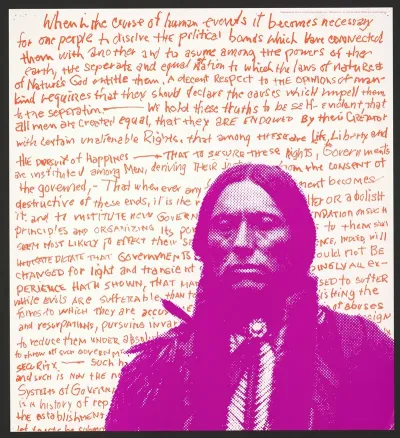 When in the course of human events it becomes necessary
for one people to disolve the political bands which have connected
them with another and to asume among the powers of the
earth, the seperate and equal station to which the laws of nature &
of Natures God entitle them. A decent respect to the opinions of man-
kind requires that they should declare the causes which impell them
to the seperation — We hold these truths to be self-evident, that
all men are created equal, that they are endowed by their Creator
with certain unalienable Rights, that among these are Life, Liberty and
the pursuit of happines — That to secure these rights, Governments
are instituted among Men, deriving their from the consent of
the governed, - That when ever any ment becomes
destructive of these ends, it is the r alter or abolish
it, and to institute new Govern ndation on such
principles and organizing its po to them shall
seem most likely to effect their s indeed will
dictate that Governments ould not be
changed for light and transient ingly all ex-
perience hath shown, that man sed to suffer
while evils are sufferable, than t lishing the
forms to which they are accus
and pursuing invar sign
to reduce them under absolu
to throw off such governme
security — such h
and such is now the n
Systems of Govern
is a history of rep
the establishment